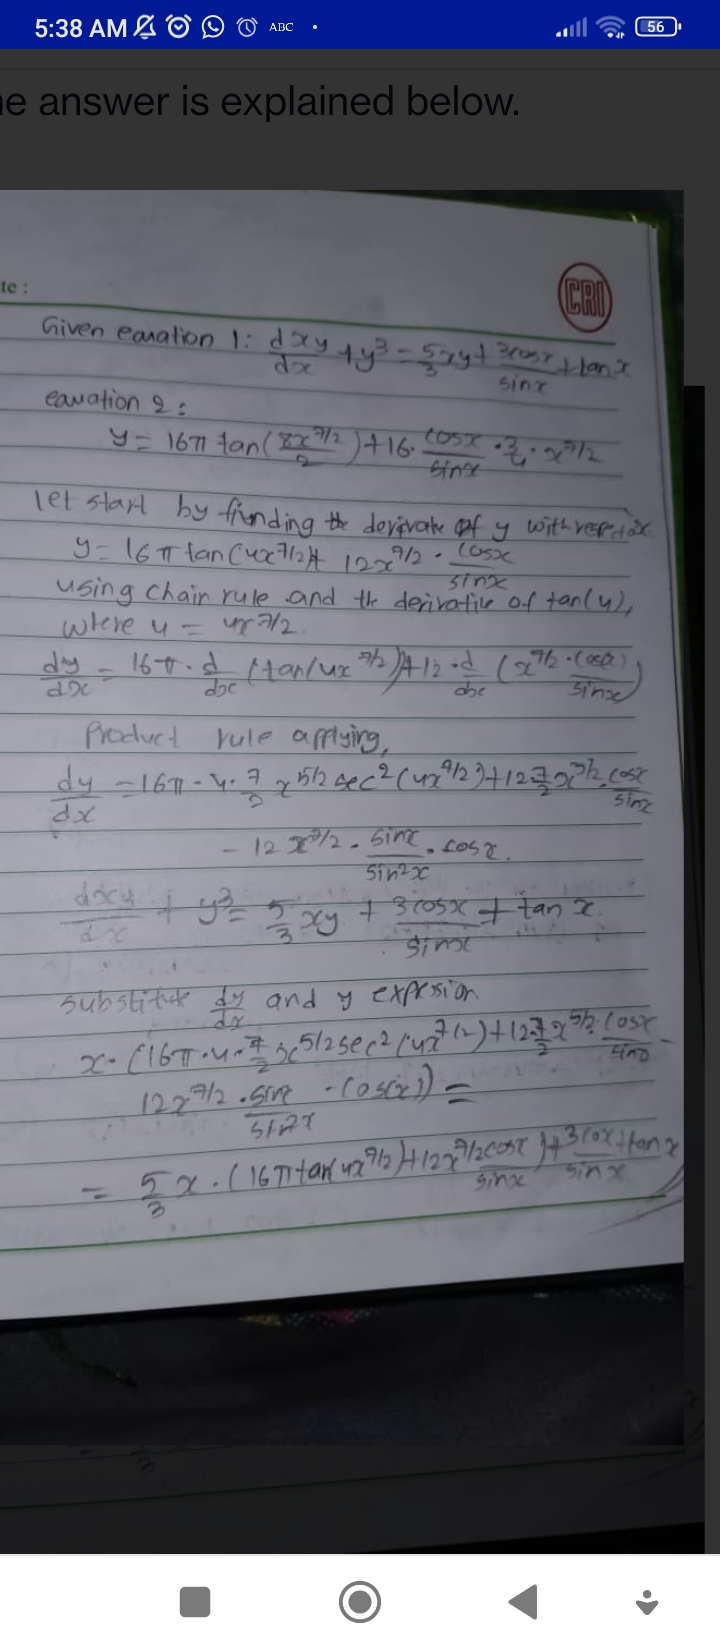 5:38 AM ABC 56
e answer is explained below.
te :
CRI
Given eauation 1: dxy/dx + y³ = 5/3 xy + 3cosx/sinx + tan x
eauation 2 :
y = 16π tan(8x^7/2 / 2) + 16 · cosx/sinx · 3/4 · x^7/2
let start by finding the derivate of y with respect
y = 16π tan(4x^7/2) + 12x^7/2 · cosx/sinx
using chain rule and the derivative of tan(u),
where u = 4x^7/2.
dy/dx = 16π · d/dx (tan(4x^7/2)) + 12 · d/dx (x^7/2 · cosx/sinx)
Product rule applying,
dy/dx = 16π · 4 · 7/2 x^5/2 sec²(4x^7/2) + 12 · 7/2 x^5/2 · cosx/sinx
- 12 x^7/2 · sinx/sin²x · cosx.
dxy/dx + y³ = 5/3 xy + 3cosx/sinx + tan x
substitute dy/dx and y expresion
x · (16π · 4 · 7/2 x^5/2 sec²(4x^7/2) + 12 · 7/2 x^5/2 · cosx/sinx -
12x^7/2 · sinx/sin²x · cos(x)) =
= 5/3 x · (16π tan(4x^7/2) + 12x^7/2 cosx/sinx) + 3cosx/sinx + tan x